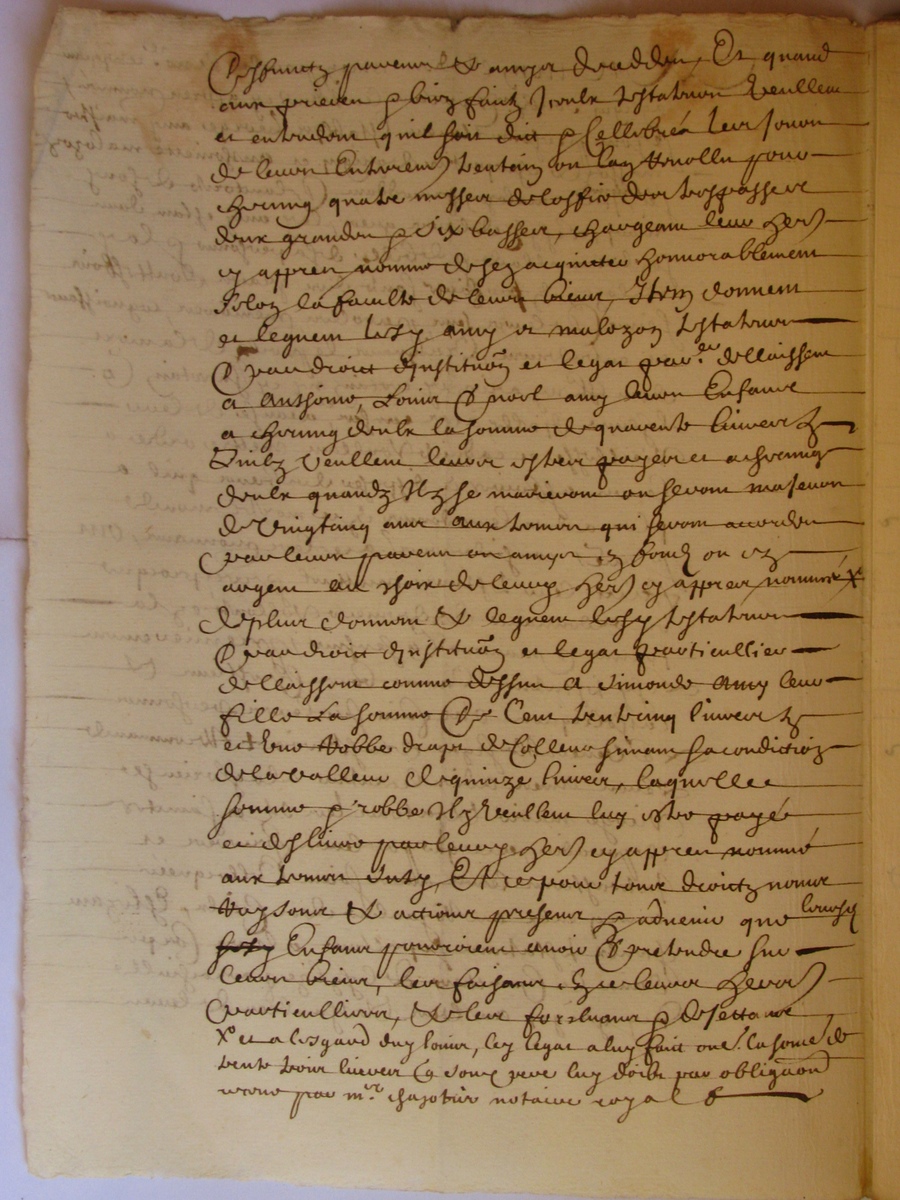 deffunctz parens & amys deceddes, Et quand
aux prieres & bienfaictz iceulx testateurs veullent
et entendent quil soit dict & cellebré les jours
de leurs enterremens trentain ou lan revollu pour
chacung quatre messes de loffice des trespasses
deux grandes & six basses, chargeant leurs hers
cy appres nommes de sen acquicter honnorablement
selon la faculte de leurs biens, Item donnent
et leguent lesd amy et malozon testateurs
Par droict dinstitution et legat par.er dellaissent
a Anthoine, Louis & noel amy leurs Enfans
a chacung deulx la somme de quarente livres tz
quilz veullent leurs estre payes et a chacung
deulx quandz Ilz se marieront ou seront majeurs
de vingtcinq ans aux termes qui seront accordes
par leurs parens et amys en fondz ou en
argent au choix de leursd hers cy appres nommes X
de plus donnent & leguent lesd testateurs
Par droict dinstitution et legat particullier
dellaissent comme dessus a Simonde Amy leur
fille La somme De Cent trente cinq livres tz
et Une Robbe drapt de Colleur suivant sa condiction
de la valleur de quinze livres, laquelle
somme & robbe Ilz veullent luy estre payée
et deslivré par leursd hers cy appres nommé
aux termes susd, Et ce pour tous droictz noms
Raysons & actions presens & advenir que leursd
Enfans pourroient avoir & pretendre sur
leurs biens, les faisans en ce leurs hers
particulliers, & les forcluans & desettans
X et a lesgard dud louis, led legat a luy faict oue. la some de
trente trois livres que sond pere luy doibt par obligaon
receue par mr. chazotier notaire royal